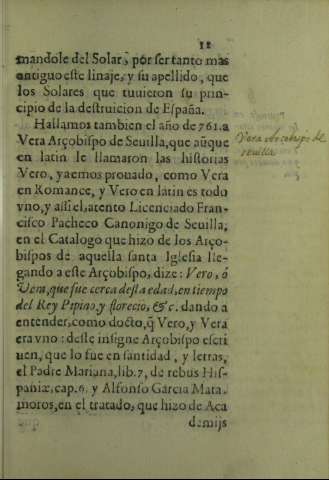 12
mandole del Solar, por ser tanto mas
antiguo este linaje, y su apellido, que
los Solares que tuuieron su prin-
cipio de la destruicion de España.
Hallamos tambien el año de 761. a
Vera Arçobispo de Seuilla, que aūque
en latin le llamaron las historias
Vero, ya emos prouado, como Vera
en Romance, y Vero en latin es todo
vno, y assi el atento Licenciado Fran-
cisco Pacheco Canonigo de Seuilla,
en el Catalogo que hizo de los Arço-
bispos de aquella santa Iglesia lle-
gando a este Arçobispo, dize: Vero, ó
Vera, que fue cerca desta edad, en tiempo
del Rey Pipino, y florecio, &c. dando a
entender, como docto, q̃ Vero, y Vera
era vno: deste insigne Arçobispo escri
uen, que lo fue en santidad, y letras,
el Padre Mariana, lib. 7, de rebus His-
paniæ, cap. 6. y Alfonso Garcia Mata
moros, en el tratado, que hizo de Aca
demijs
Vera Arcobispo de
seuilla